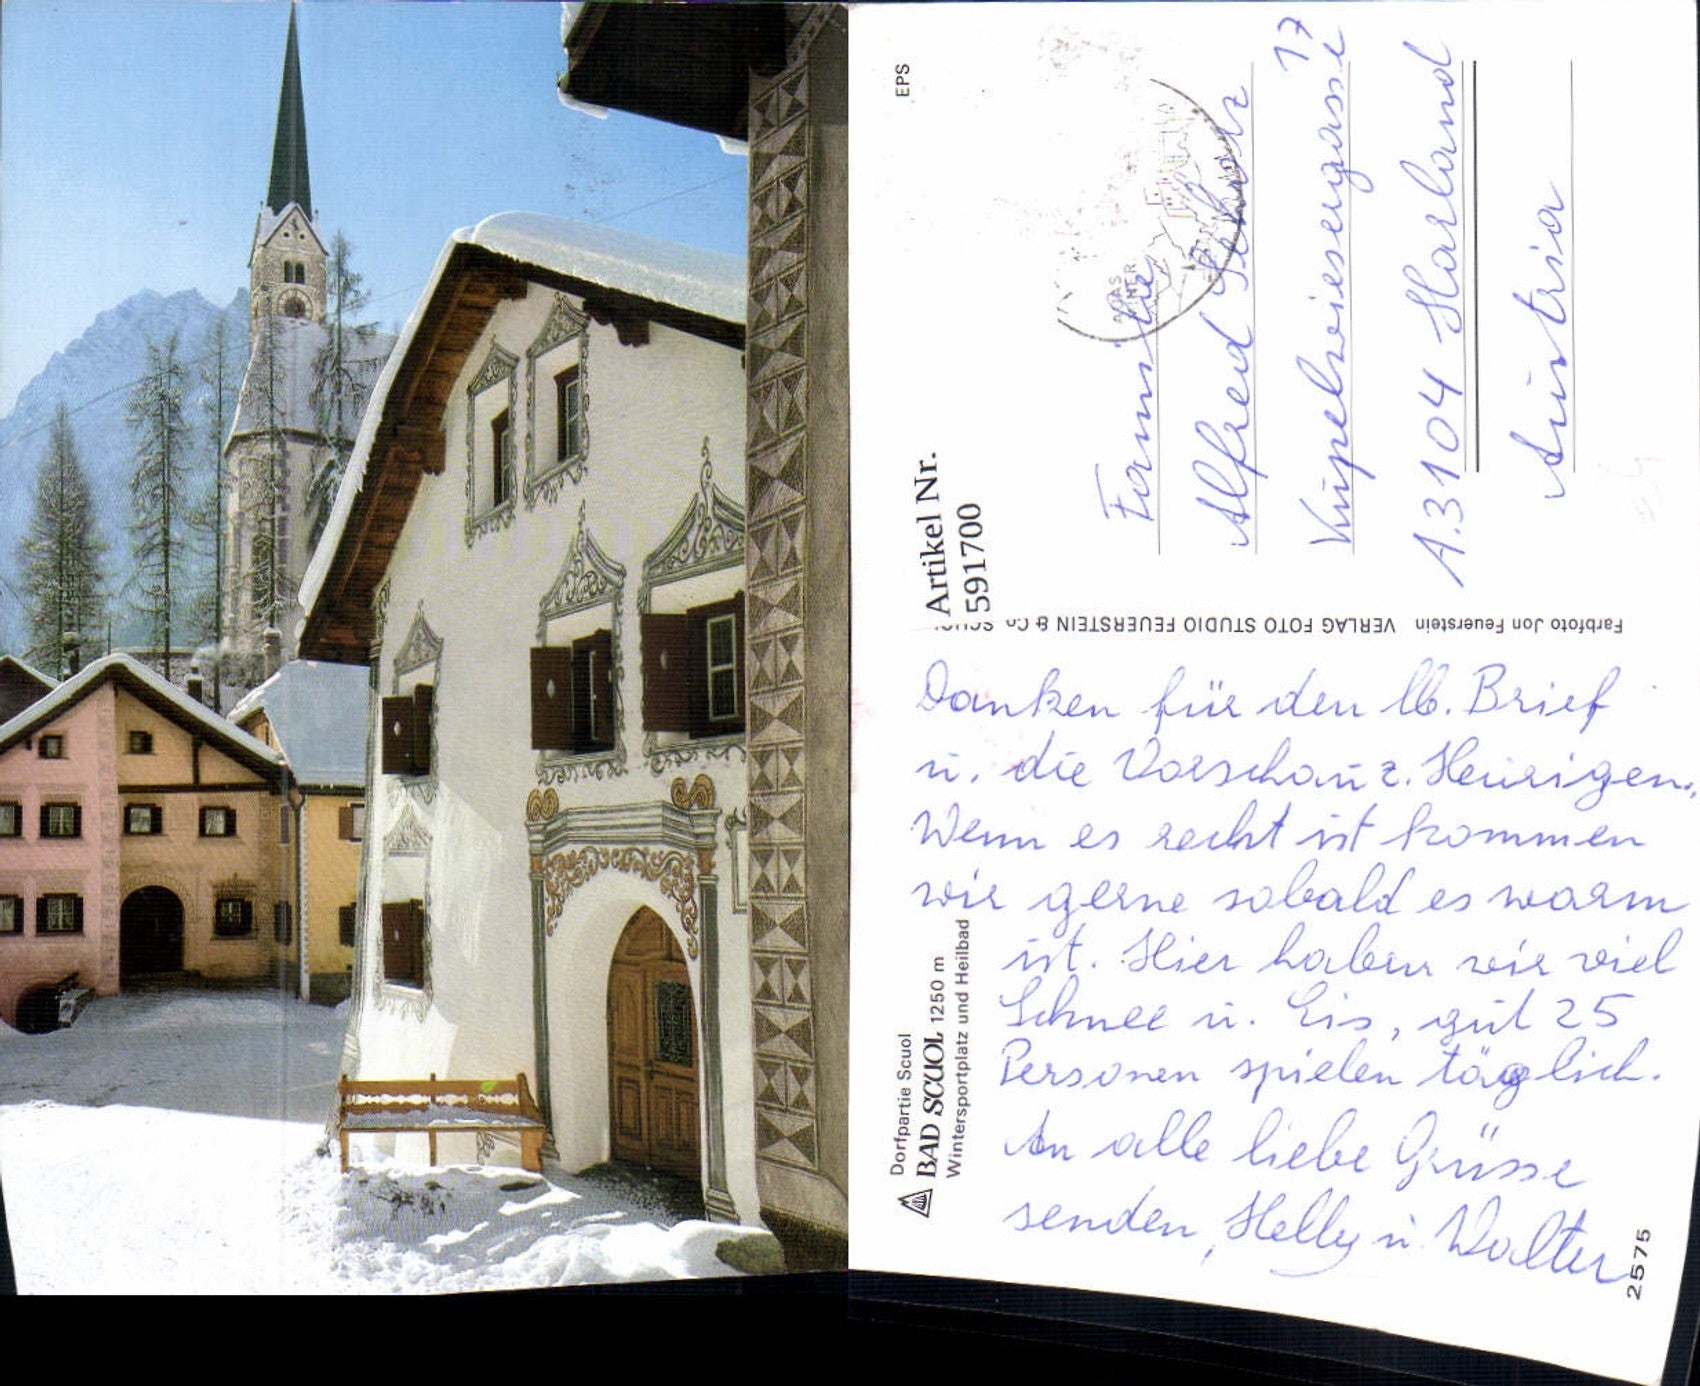 EPS
Artikel Nr.
591700
Familie
Alfred Scharz
Kupelwiesergasse 17
A.3104 Harland
Austria
Farbfoto Jon Feuerstein VERLAG FOTO STUDIO FEUERSTEIN & Co
Danken für den lb. Brief
u. die Vorschau z. Heurigen.
Wenn es recht ist kommen
wir gerne sobald es warm
ist. Hier haben wir viel
Schnee u. Eis, gut 25
Personen spielen täglich.
An alle liebe Grüsse
senden, Helly u. Walter
Dorfpartie Scuol
BAD SCUOL 1250 m
Wintersportplatz und Heilbad
25575